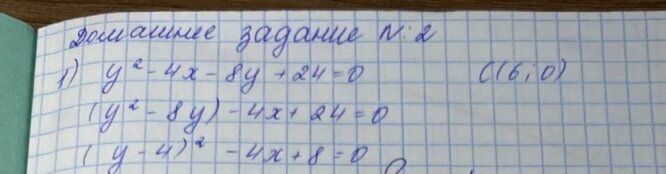 Домашнее задание N: 2
1) y² - 4x - 8y + 24 = 0 (16; 0)
(y² - 8y) - 4x + 24 = 0
(y - 4)² - 4x + 8 = 0